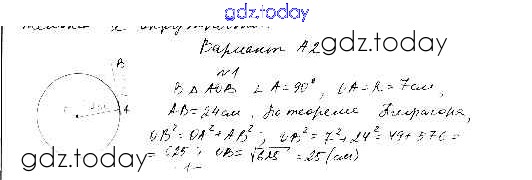 gdz.today
Вариант А2 gdz.today
B
№1
В Δ AOB ∠A=90°, OA=R=7см,
A
AB=24см. По теореме Пифагора,
OB²=OA²+AB²; OB²=7²+24²=49+576=
=625; OB=√625=25(см)
gdz.today